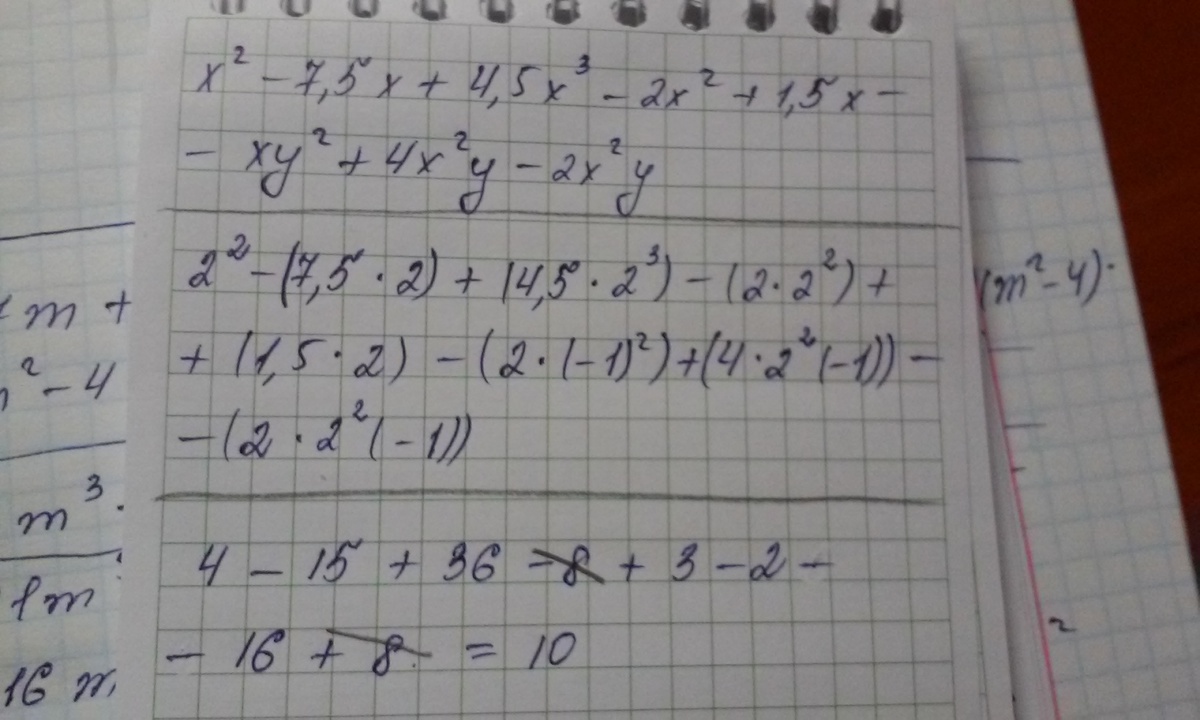 x² - 7,5x + 4,5x³ - 2x² + 1,5x -
- xy² + 4x²y - 2x²y
2² - (7,5 · 2) + (4,5 · 2³) - (2 · 2²) +
+ (1,5 · 2) - (2 · (-1)²) + (4 · 2² (-1)) -
- (2 · 2² (-1))
4 - 15 + 36 - 8 + 3 - 2 -
- 16 + 8 = 10
m +
² - 4
m³ ·
m
16
(m² - 4) ·
2